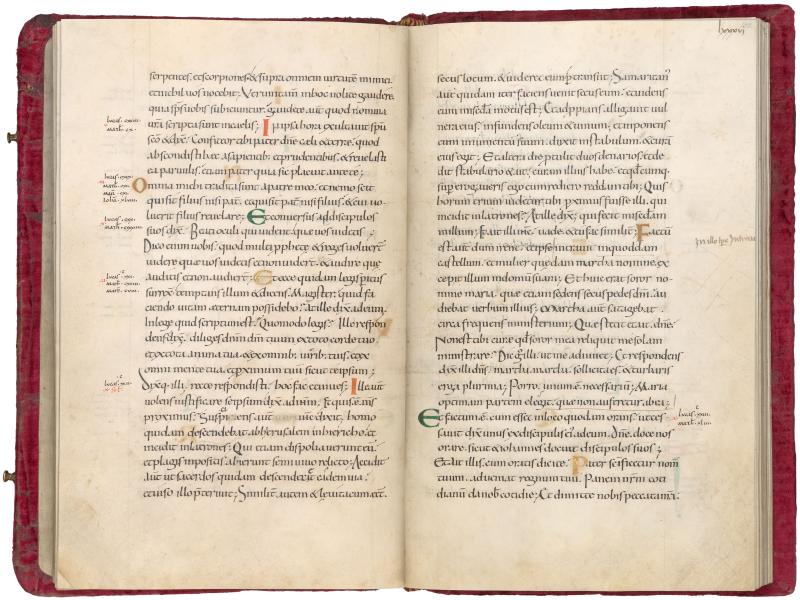 serpentes. et scorpiones & supra omnem uirtutem inimici.
et nihil uos nocebit; Verumtam in hoc nolite gaudere
quia sps uobis subiciuntur. gaudete aut quod nomina
ura scripta sunt in caelis; In ipsa hora exultauit spu
sco & dix. Confiteor tibi pater dne caeli et terrae. quod
abscondisti haec a sapientib. et prudentibus. & reuelasti
ea paruulis. etiam pater quia sic placuit ante te;
Omnia mihi tradita sunt a patre meo. et nemo scit
qui sit filius nisi pat. et qui sit pat nisi filius. & cui uo
luerit filius reuelare; Et conuersus ad discipulos
suos dix. Beati oculi qui uident quae uos uidetis;
Dico enim uobis. quod multi pphetae & reges uoluer
uidere quae uos uidetis et non uider. & audire quae
auditis et non audier; Et ecce quidam legis peritus
surrex temptans illum & dicens. Magister. quid fa
ciendo uitam aeternam possidebo; At ille dix. ad eum.
In lege quid scriptum est. Quomodo legis; Ille respon
dens dix. diliges dnm dm tuum ex toto corde tuo
et ex tota anima tua. & ex omnib. uirib. tuis. et ex
omni mente tua. et proximum tuum sicut te ipsum;
Dixq. illi. recte respondisti. hoc fac et uiues; Ille aut
uolens iustificare se ipsum dix. ad ihm. & quis e ms
proximus; Suspiciens aut ihs dixit. homo
quidam descendebat ab hierusalem in hiericho. et
incidit in latrones; Qui etiam dispoliauerunt eu.
et plagis impositis. abierunt semiuiuo relicto; Accidit
aut ut sacerdos quidam descenderet eadem uia.
et uiso illo pterunt; Similit autem & leuita cum eet.
lxxxvi
secus locum. & uideret eum ptransiit; Samaritan
aut quidam iter faciens uenit secus eum. & uidens
eum miseda motus est; Et adppians alligauit uul
nera eius infundens oleum & uinum; et imponens
eum in iumentum suum. duxit in stabulum. & cura
eius egit; Et altera die ptulit duos denarios. & dedi
dit stabulario & ait. curam illius habe. et qdcumq
superogaueris ego cum rediero reddam tibi; Quis
horum trium uidetur tibi proximus fuisse illi. qui
incidit in latrones; At ille dix. qui fecit miseda
in illum; Et ait illi ihs. uade et tu fac similit; Factu
est aut dum irent. et ipse intrauit in quoddam
castellum. et mulier quaedam martha nomine. ex
cepit illum in domum suam; Et huic erat soror no
mine maria. quae etiam sedens secus pedes dni. au
diebat uerbum illius; Martha aut satagebat
circa frequens ministerium; Quae stetit et ait. dne.
Non est tibi curae qd soror mea reliquit me solam
ministrare; Dic g illi. ut me adiuuet; Et respondens
dix illi dns. martha martha. sollicita es. & turbaris
erga plurima; Porro unum e necessarium; Maria
optimam partem elegit. quae non auferetur ab ea;
Et factum e. cum esset in loco quodam orans. ut ces
sauit dix unus ex discipulis ei. ad eum. dne. doce nos
orare. sicut & iohannes docuit discipulos suos;
Et ait illis. cum oratis dicite. Pater scificetur nom
tuum. adueniat regnum tuu. Panem nrm coti
dianu da nob cotidie; Et dimitte nobis peccata nra.